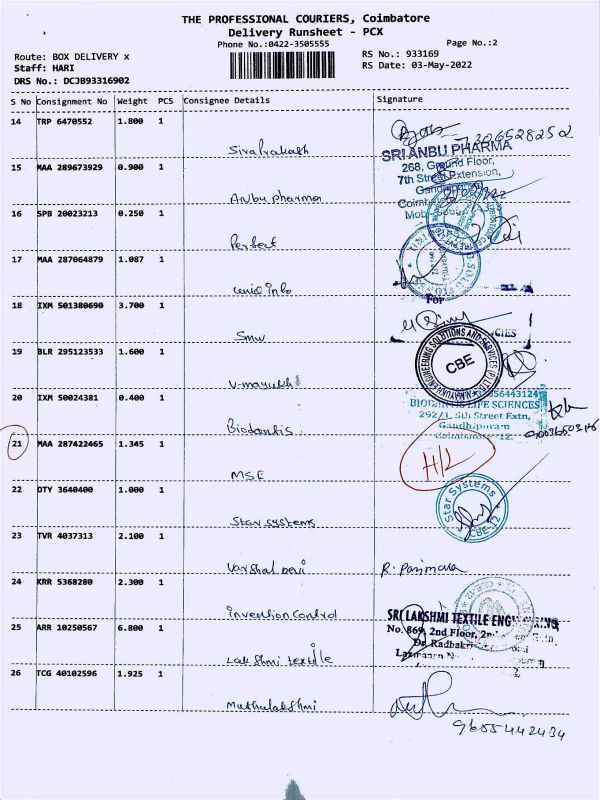 THE PROFESSIONAL COURIERS, Coimbatore
Delivery Runsheet - PCX
Phone No.:0422-3505555
Page No.:2
Route: BOX DELIVERY x
RS No.: 933169
Staff: HARI
RS Date: 03-May-2022
DRS No.: DCJB93316902
S No Consignment No Weight PCS Consignee Details Signature
14 TRP 6470552 1.800 1
7306528252
SRI ANBU PHARMA
268, Ground Floor,
15 MAA 289673929 0.900 1
7th Street Extension,
Anbu pharma
16 SPB 20023213 0.250 1
Perfect
17 MAA 287064879 1.087 1
unio info
For
18 IXM 501380690 3.700 1
CIES
Smw
19 BLR 295123533 1.600 1
ENGINEERING SOLUTIONS AND SERVICES (P) LTD
CBE
V-mayukh
20 IXM 50024381 0.400 1
LIFE SCIENCES
292/1, 5th Street Extn,
Gandhipuram
Coimbatore-12.
Biodantis
21 MAA 287422465 1.345 1
H/L
MSE
22 DTY 3640400 1.000 1
Star Systems
CBE-12
Star systems
23 TVR 4037313 2.100 1
Varshal Devi
24 KRR 5368280 2.300 1
invention Control
SRI LAKSHMI TEXTILE ENG
No. 869, 2nd Floor,
25 ARR 10250567 6.800 1
Dr. Radhakri
Lakshmi textile
26 TCG 40102596 1.925 1
Muthulakshmi
9655442434